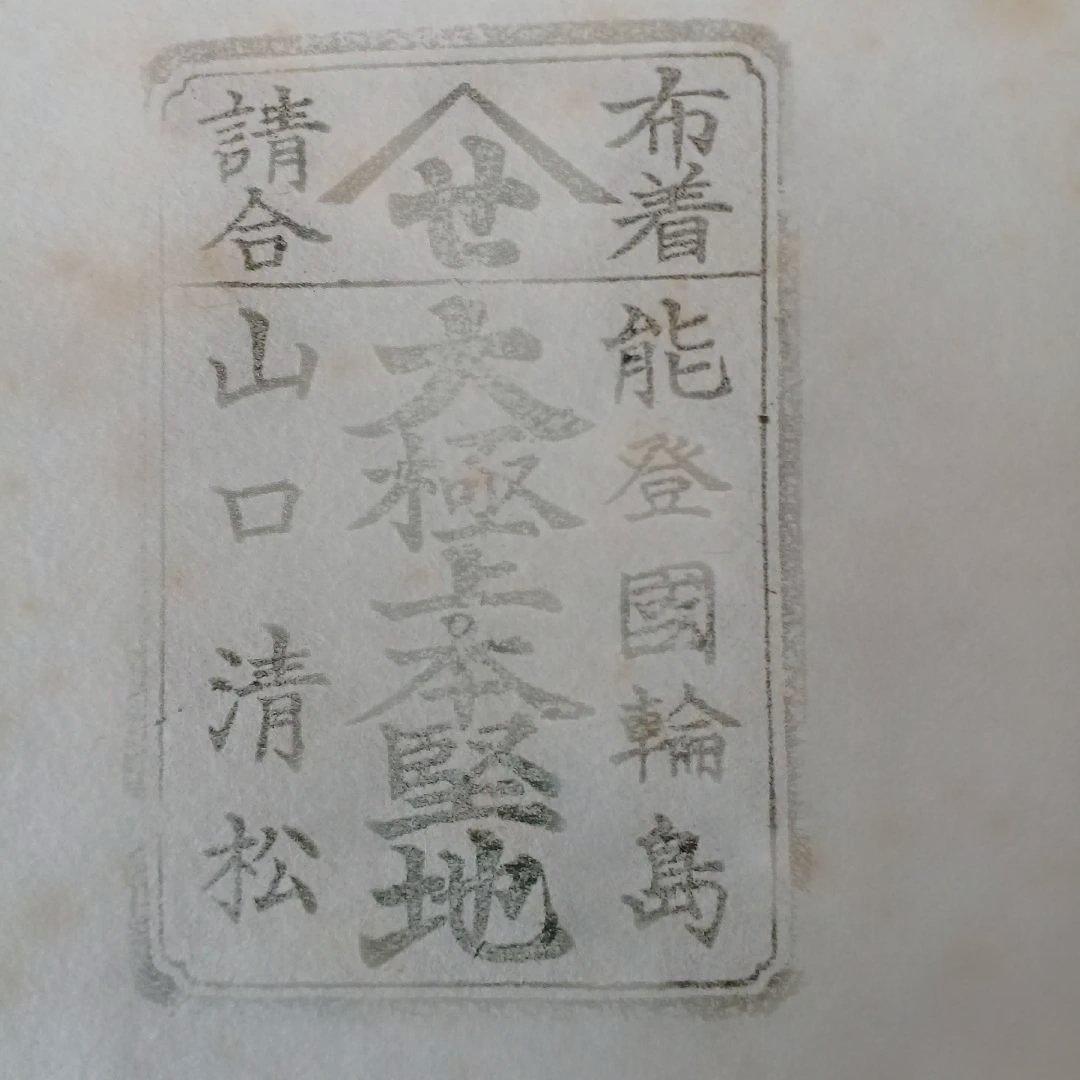 布着
能登國輪島
廿
大極上本堅地
請合
山口清松